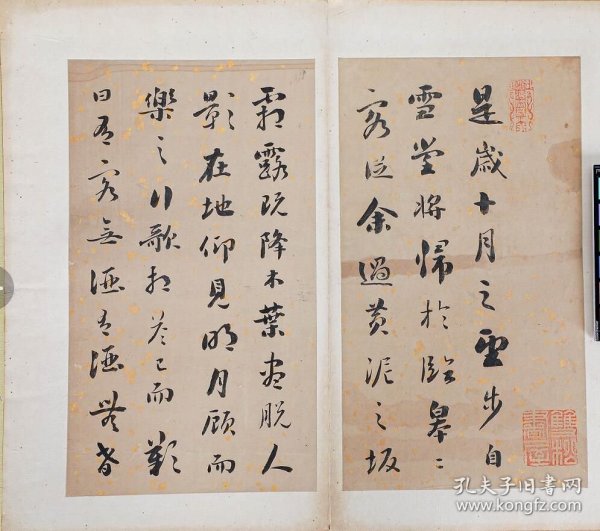 是歲十月之望步自
雪堂將歸於臨皋二
客從余過黃泥之坂
霜露既降木葉盡脫人
影在地仰見明月顧而
樂之行歌相答已而歎
曰有客無酒有酒無肴
孔夫子旧书网
www.kongfz.com